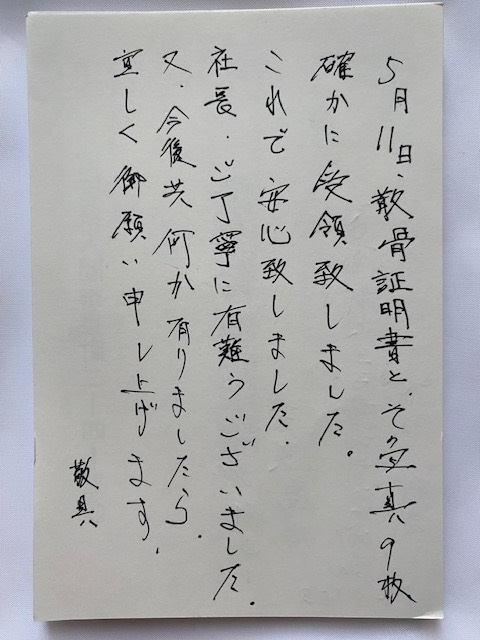 5月11日、散骨証明書と、その写真9枚
確かに受領致しました。
これで安心致しました.
社長.ご丁寧に有難うございました.
又.今後共何か有りましたら.
宜しく御願い申し上げます.
敬具